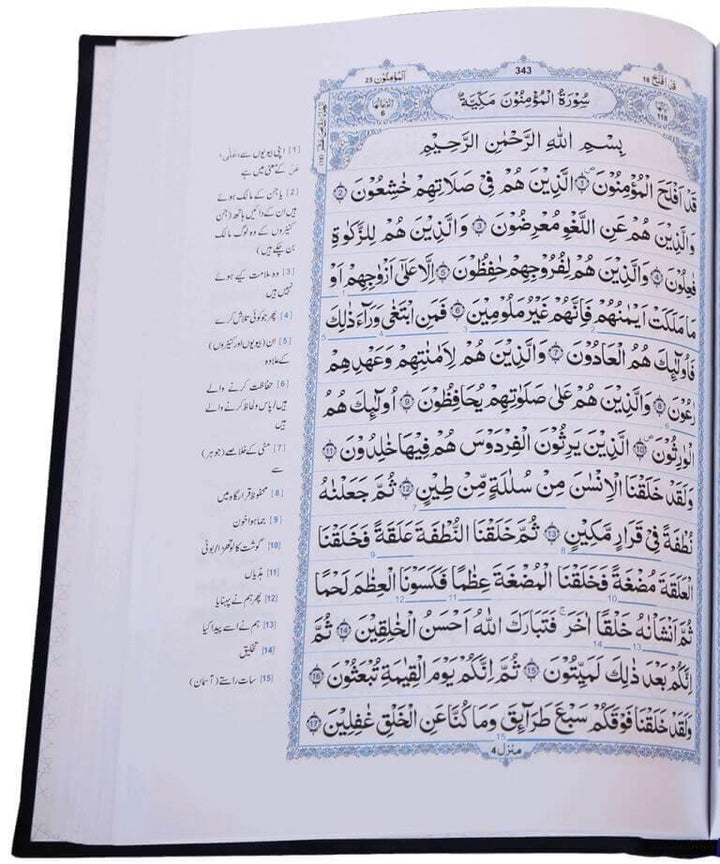 قَدْ اَفْلَحَ 18
343
اَلْمُؤْمِنُوْن 23
اٰيَاتُهَا 118
سُوْرَةُ الْمُؤْمِنُوْنَ مَكِّيَّةٌ
رُكُوْعَاتُهَا 6
بِسْمِ اللهِ الرَّحْمٰنِ الرَّحِيْمِ
قَدْ اَفْلَحَ الْمُؤْمِنُوْنَ ۙ ۝۱ الَّذِيْنَ هُمْ فِيْ صَلَاتِهِمْ خٰشِعُوْنَ ۝۲
وَالَّذِيْنَ هُمْ عَنِ اللَّغْوِ مُعْرِضُوْنَ ۝۳ وَالَّذِيْنَ هُمْ لِلزَّكٰوةِ
فٰعِلُوْنَ ۝۴ وَالَّذِيْنَ هُمْ لِفُرُوْجِهِمْ حٰفِظُوْنَ ۝۵ اِلَّا عَلٰٓى اَزْوَاجِهِمْ اَوْ
مَا مَلَكَتْ اَيْمٰنُهُمْ فَاِنَّهُمْ غَيْرُ مَلُوْمِيْنَ ۝۶ فَمَنِ ابْتَغٰى وَرَآءَ ذٰلِكَ
فَاُولٰٓئِكَ هُمُ الْعَادُوْنَ ۝۷ وَالَّذِيْنَ هُمْ لِاَمٰنٰتِهِمْ وَعَهْدِهِمْ
رٰعُوْنَ ۝۸ وَالَّذِيْنَ هُمْ عَلٰى صَلَوٰتِهِمْ يُحَافِظُوْنَ ۝۹ اُولٰٓئِكَ هُمُ
الْوٰرِثُوْنَ ۝۱۰ الَّذِيْنَ يَرِثُوْنَ الْفِرْدَوْسَ هُمْ فِيْهَا خٰلِدُوْنَ ۝۱۱
وَلَقَدْ خَلَقْنَا الْاِنْسٰنَ مِنْ سُلٰلَةٍ مِّنْ طِيْنٍ ۝۱۲ ثُمَّ جَعَلْنٰهُ
نُطْفَةً فِيْ قَرَارٍ مَّكِيْنٍ ۝۱۳ ثُمَّ خَلَقْنَا النُّطْفَةَ عَلَقَةً فَخَلَقْنَا
الْعَلَقَةَ مُضْغَةً فَخَلَقْنَا الْمُضْغَةَ عِظٰمًا فَكَسَوْنَا الْعِظٰمَ لَحْمًا
ثُمَّ اَنْشَاْنٰهُ خَلْقًا اٰخَرَ ۚ فَتَبَارَكَ اللهُ اَحْسَنُ الْخٰلِقِيْنَ ۝۱۴ ثُمَّ
اِنَّكُمْ بَعْدَ ذٰلِكَ لَمَيِّتُوْنَ ۝۱۵ ثُمَّ اِنَّكُمْ يَوْمَ الْقِيٰمَةِ تُبْعَثُوْنَ ۝۱۶
وَلَقَدْ خَلَقْنَا فَوْقَكُمْ سَبْعَ طَرَآئِقَ وَمَا كُنَّا عَنِ الْخَلْقِ غٰفِلِيْنَ ۝۱۷
منزل 4
[1] اپنی بیویوں سے، عَلٰى،
عَنْ کے معنی میں ہے
[2] یا جن کے مالک ہوئے
ہیں ان کے دائیں ہاتھ (جن
کنیزوں کے وہ لوگ مالک
بن چکے ہیں)
[3] وہ ملامت کیے ہوئے
نہیں ہیں
[4] پھر جو کوئی تلاش کرے
[5] ان (بیویوں اور کنیزوں)
کے علاوہ
[6] حفاظت کرنے والے
ہیں/پاس و لحاظ کرنے والے
ہیں
[7] مٹی کے خلاصے (جوہر)
سے
[8] محفوظ قرار گاہ میں
[9] جما ہوا خون
[10] گوشت کا لوتھڑا/بوٹی
[11] ہڈیاں
[12] پھر ہم نے پہنایا
[13] ہم نے اسے پیدا کیا
[14] تخلیق
[15] سات راستے (آسمان)